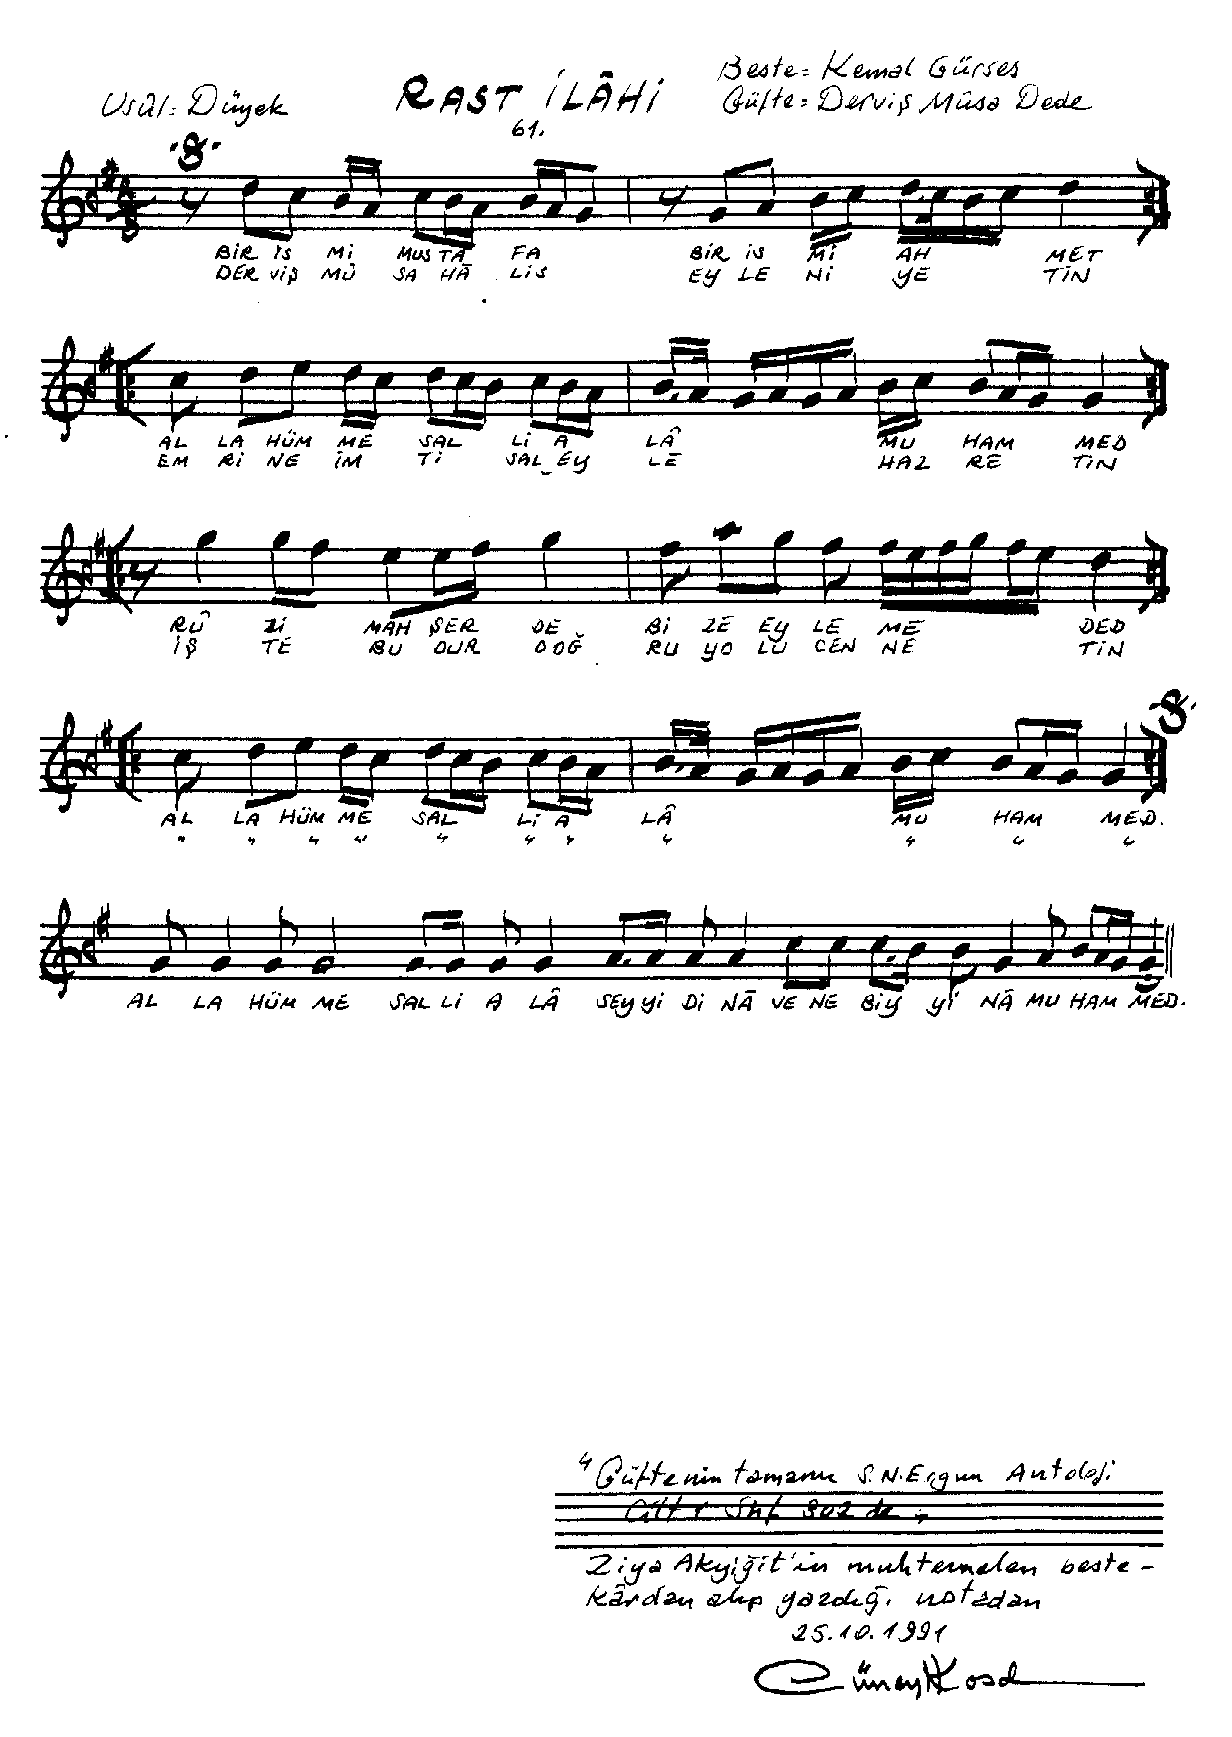 Beste= Kemal Gürses
Usûl: Düyek RAST İLÂHİ Güfte= Derviş Mûsa Dede
61.
BİR İS Mİ MUS TA FA BİR İS Mİ AH MET
DER VİŞ MÛ SA HÂ LİS EY LE Nİ YE TİN
AL LA HÜM ME SAL Lİ A LÂ MU HAM MED
EM Rİ NE İM Tİ SAL EY LE HAZ RE TİN
RÛ Zİ MAH ŞER DE Bİ ZE EY LE ME DED
İŞ TE BU DUR DOĞ RU YO LU CEN NE TİN
AL LA HÜM ME SAL Lİ A LÂ MU HAM MED.
" " " " " " " " " " "
AL LA HÜM ME SAL Lİ A LÂ SEY Yİ Dİ NÂ VE NE BİY Yİ NÂ MU HAM MED.
Güftenin tamamı S.N.Ergun Antoloji
Cilt 1 Shf 302 de
Ziya Akyiğit'in muhtemelen beste-
kârdan alıp yazdığı notadan
25.10.1991